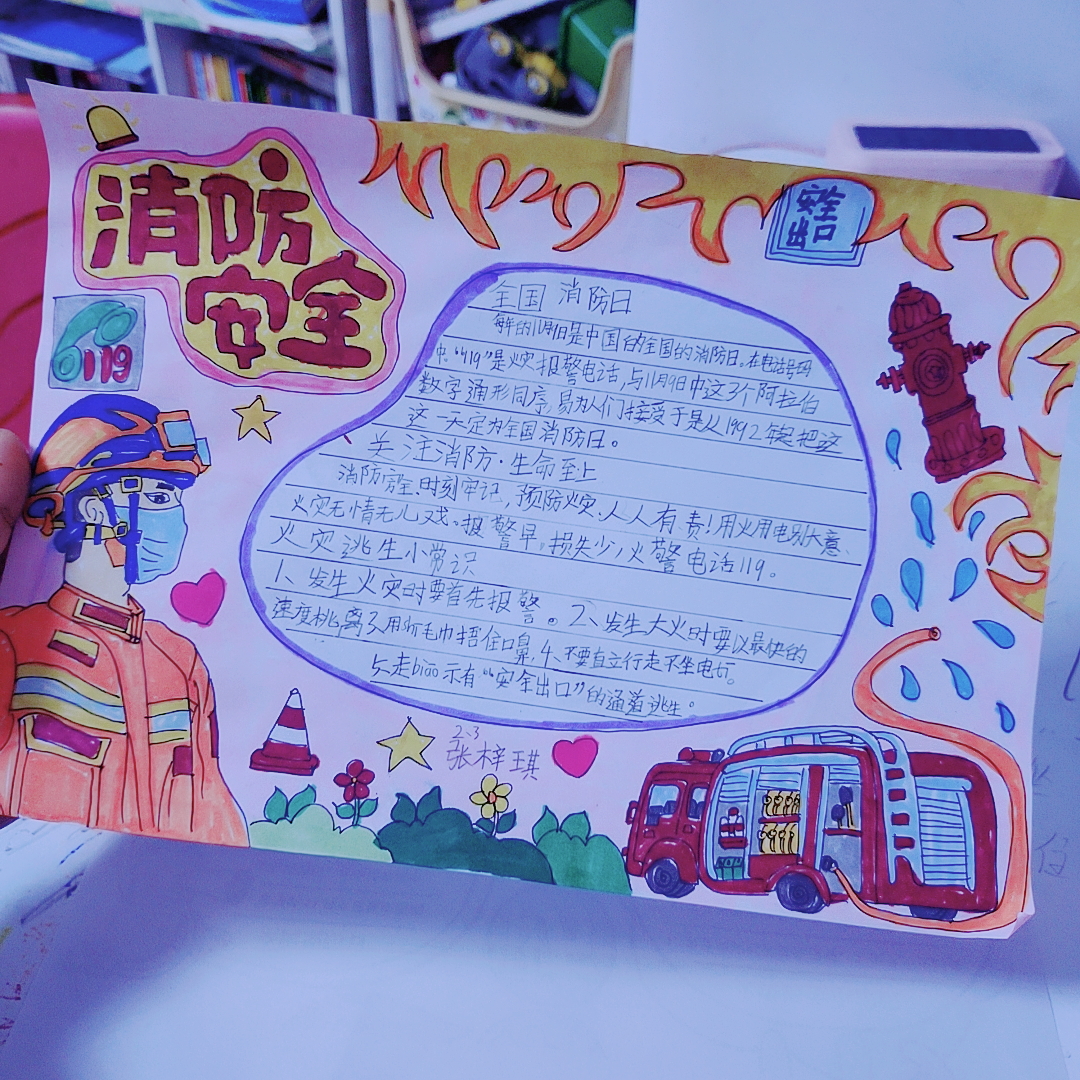 消防
安全
119
安全
出口
全国 消防日
每年的11月9日是中国的全国的消防日。在电话号码
中"119"是火灾报警电话,与11月9日中这3个阿拉伯
数字 形同序,易为人们接受于是从1992年起把这
这一天定为全国消防日。
关注消防·生命至上
消防安全、时刻牢记,预防火灾、人人有责!用火用电别大意、
火灾无情无儿戏。报警早,损失少,火警电话119。
火灾逃生小常识
1、发生火灾时要首先报警。2、发生大火时要以最快的
速度 离3、用 毛巾捂住口鼻,4、不要直立行走不坐电 。
5、走biāo示有"安全出口"的通道逃生。
2-3
张梓琪